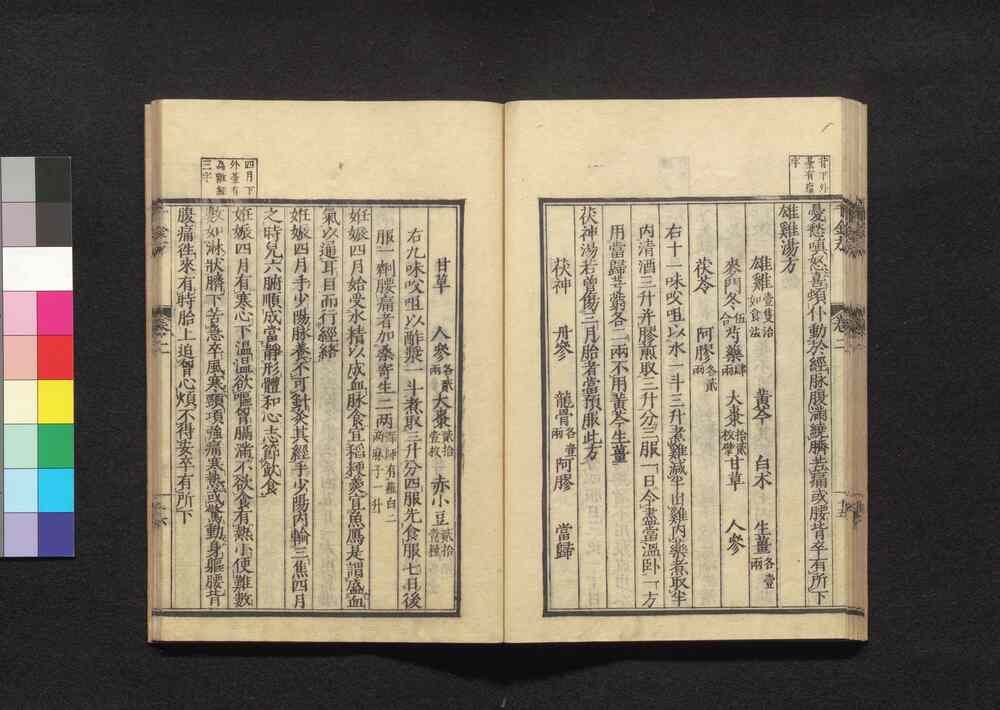 背下外
臺有痛
字
憂愁嗔怒喜頓仆動於經脉腹滿繞臍苦痛或腰背卒有所下
雄雞湯方
雄雞壹隻治如食法　黃芩　白朮　生薑各壹兩
麥門冬伍合　芍藥肆兩　大棗拾貳枚擘　甘草　人參
茯苓　阿膠各貳兩
右十一味㕮咀以水一斗三升煮雞減半出雞內藥煮取半
內清酒三升并膠煎取三升分三服一日令盡當溫臥一方
用當歸芎藭各二兩不用黃芩生薑
茯神湯若曾傷三月胎者當預服此方
茯神　丹參　龍骨各壹兩　阿膠　當歸
卷二
十五
甘草　人參各貳兩　大棗貳拾壹枚　赤小豆貳拾壹粒
右九味㕮咀以酢漿一斗煮取三升分四服先食服七日後
服一劑腰痛者加桑寄生二兩深師有薤白二兩麻子一升
妊娠四月始受水精以成血脉食宜稻粳羹宜魚鴈是謂盛血
氣以通耳目而行經絡
妊娠四月手少陽脉養不可針灸其經手少陽內輸三焦四月
之時兒六腑順成當靜形體和心志節飲食
四月下
外臺有
為離經
三字
妊娠四月有寒心下溫溫欲嘔胷膈滿不欲食有熱小便難數
數如淋狀臍下苦急卒風寒頸項強痛寒熱或驚動身軀腰背
腹痛往來有時胎上迫胷心煩不得安卒有所下